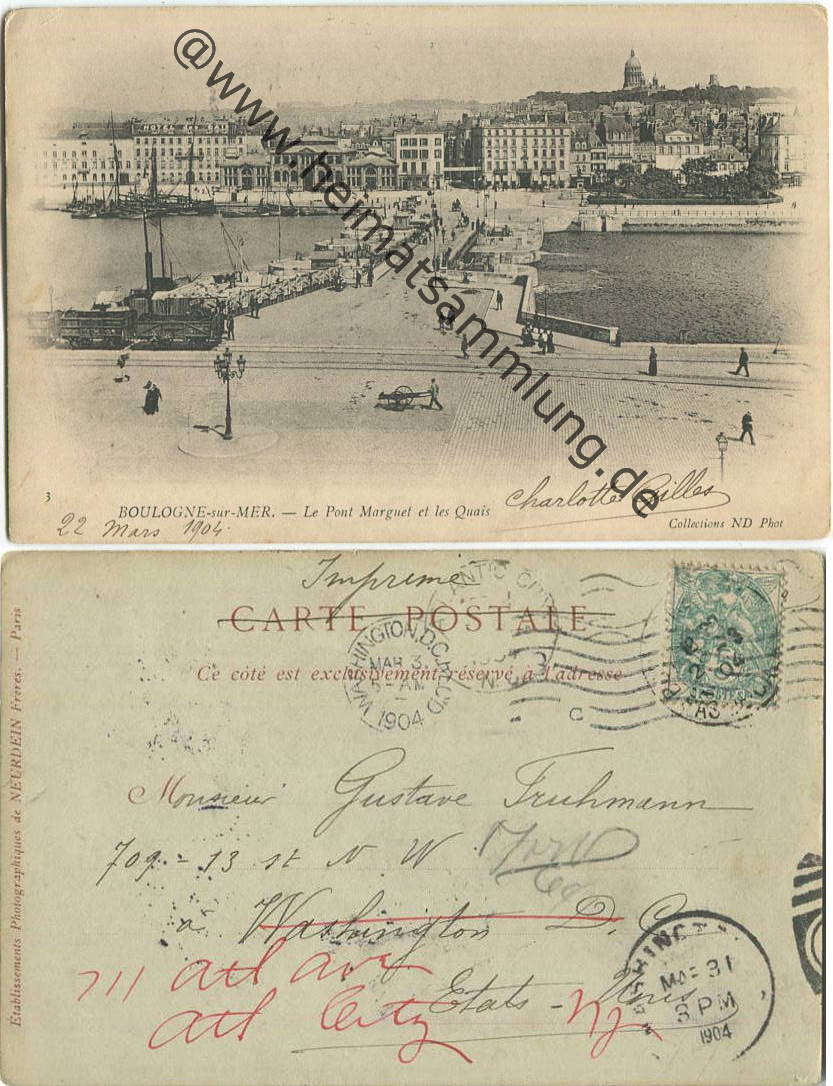 @www.heimatsammlung.de
3
BOULOGNE-sur-MER. — Le Pont Marguet et les Quais
Charlotte Gilles
22 Mars 1904.
Collections ND Phot
Imprimé
CARTE POSTALE
Ce côté est exclusivement réservé à l'adresse
WASHINGTON, D.C. REC'D.
MAR 3
5-AM
1904
ATLANTIC CITY
N.
C
Établissements Photographiques de NEURDEIN Frères. — Paris
Monsieur Gustave Fruhmann
709 = 13 st N W
à Washington D. C.
711 atl ave
Etats-Unis
atl City NJ.
WASHINGT
MAR 31
8 PM
1904